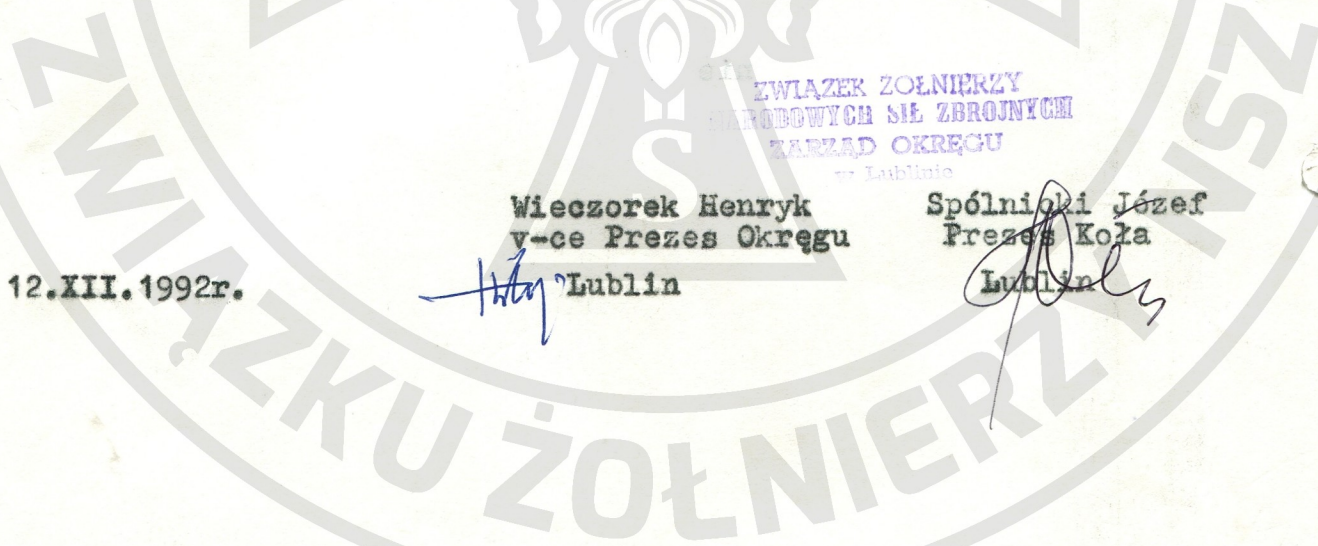 ZWIĄZEK ŻOŁNIERZY
NARODOWYCH SIŁ ZBROJNYCH
ZARZĄD OKRĘGU
w Lublinie
Wieczorek Henryk
v-ce Prezes Okręgu
Lublin
Spólnicki Józef
Prezes Koła
Lublin
12.XII.1992r.
ZWIĄZKU ŻOŁNIERZY NSZ
S